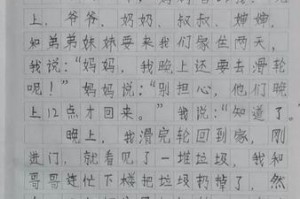 上，爷爷，奶奶，叔叔，婶婶，
和弟弟妹妹要来我们家住两天，
我说：“妈妈，我晚上还要去滑轮
呢！”妈妈说：“别担心，他们晚
上12点才回来。”我说：“知道了。”
晚上，我滑完轮回到家，刚
进门，就看见了一堆垃圾，我和
哥哥连忙下楼把垃圾扔掉了，然